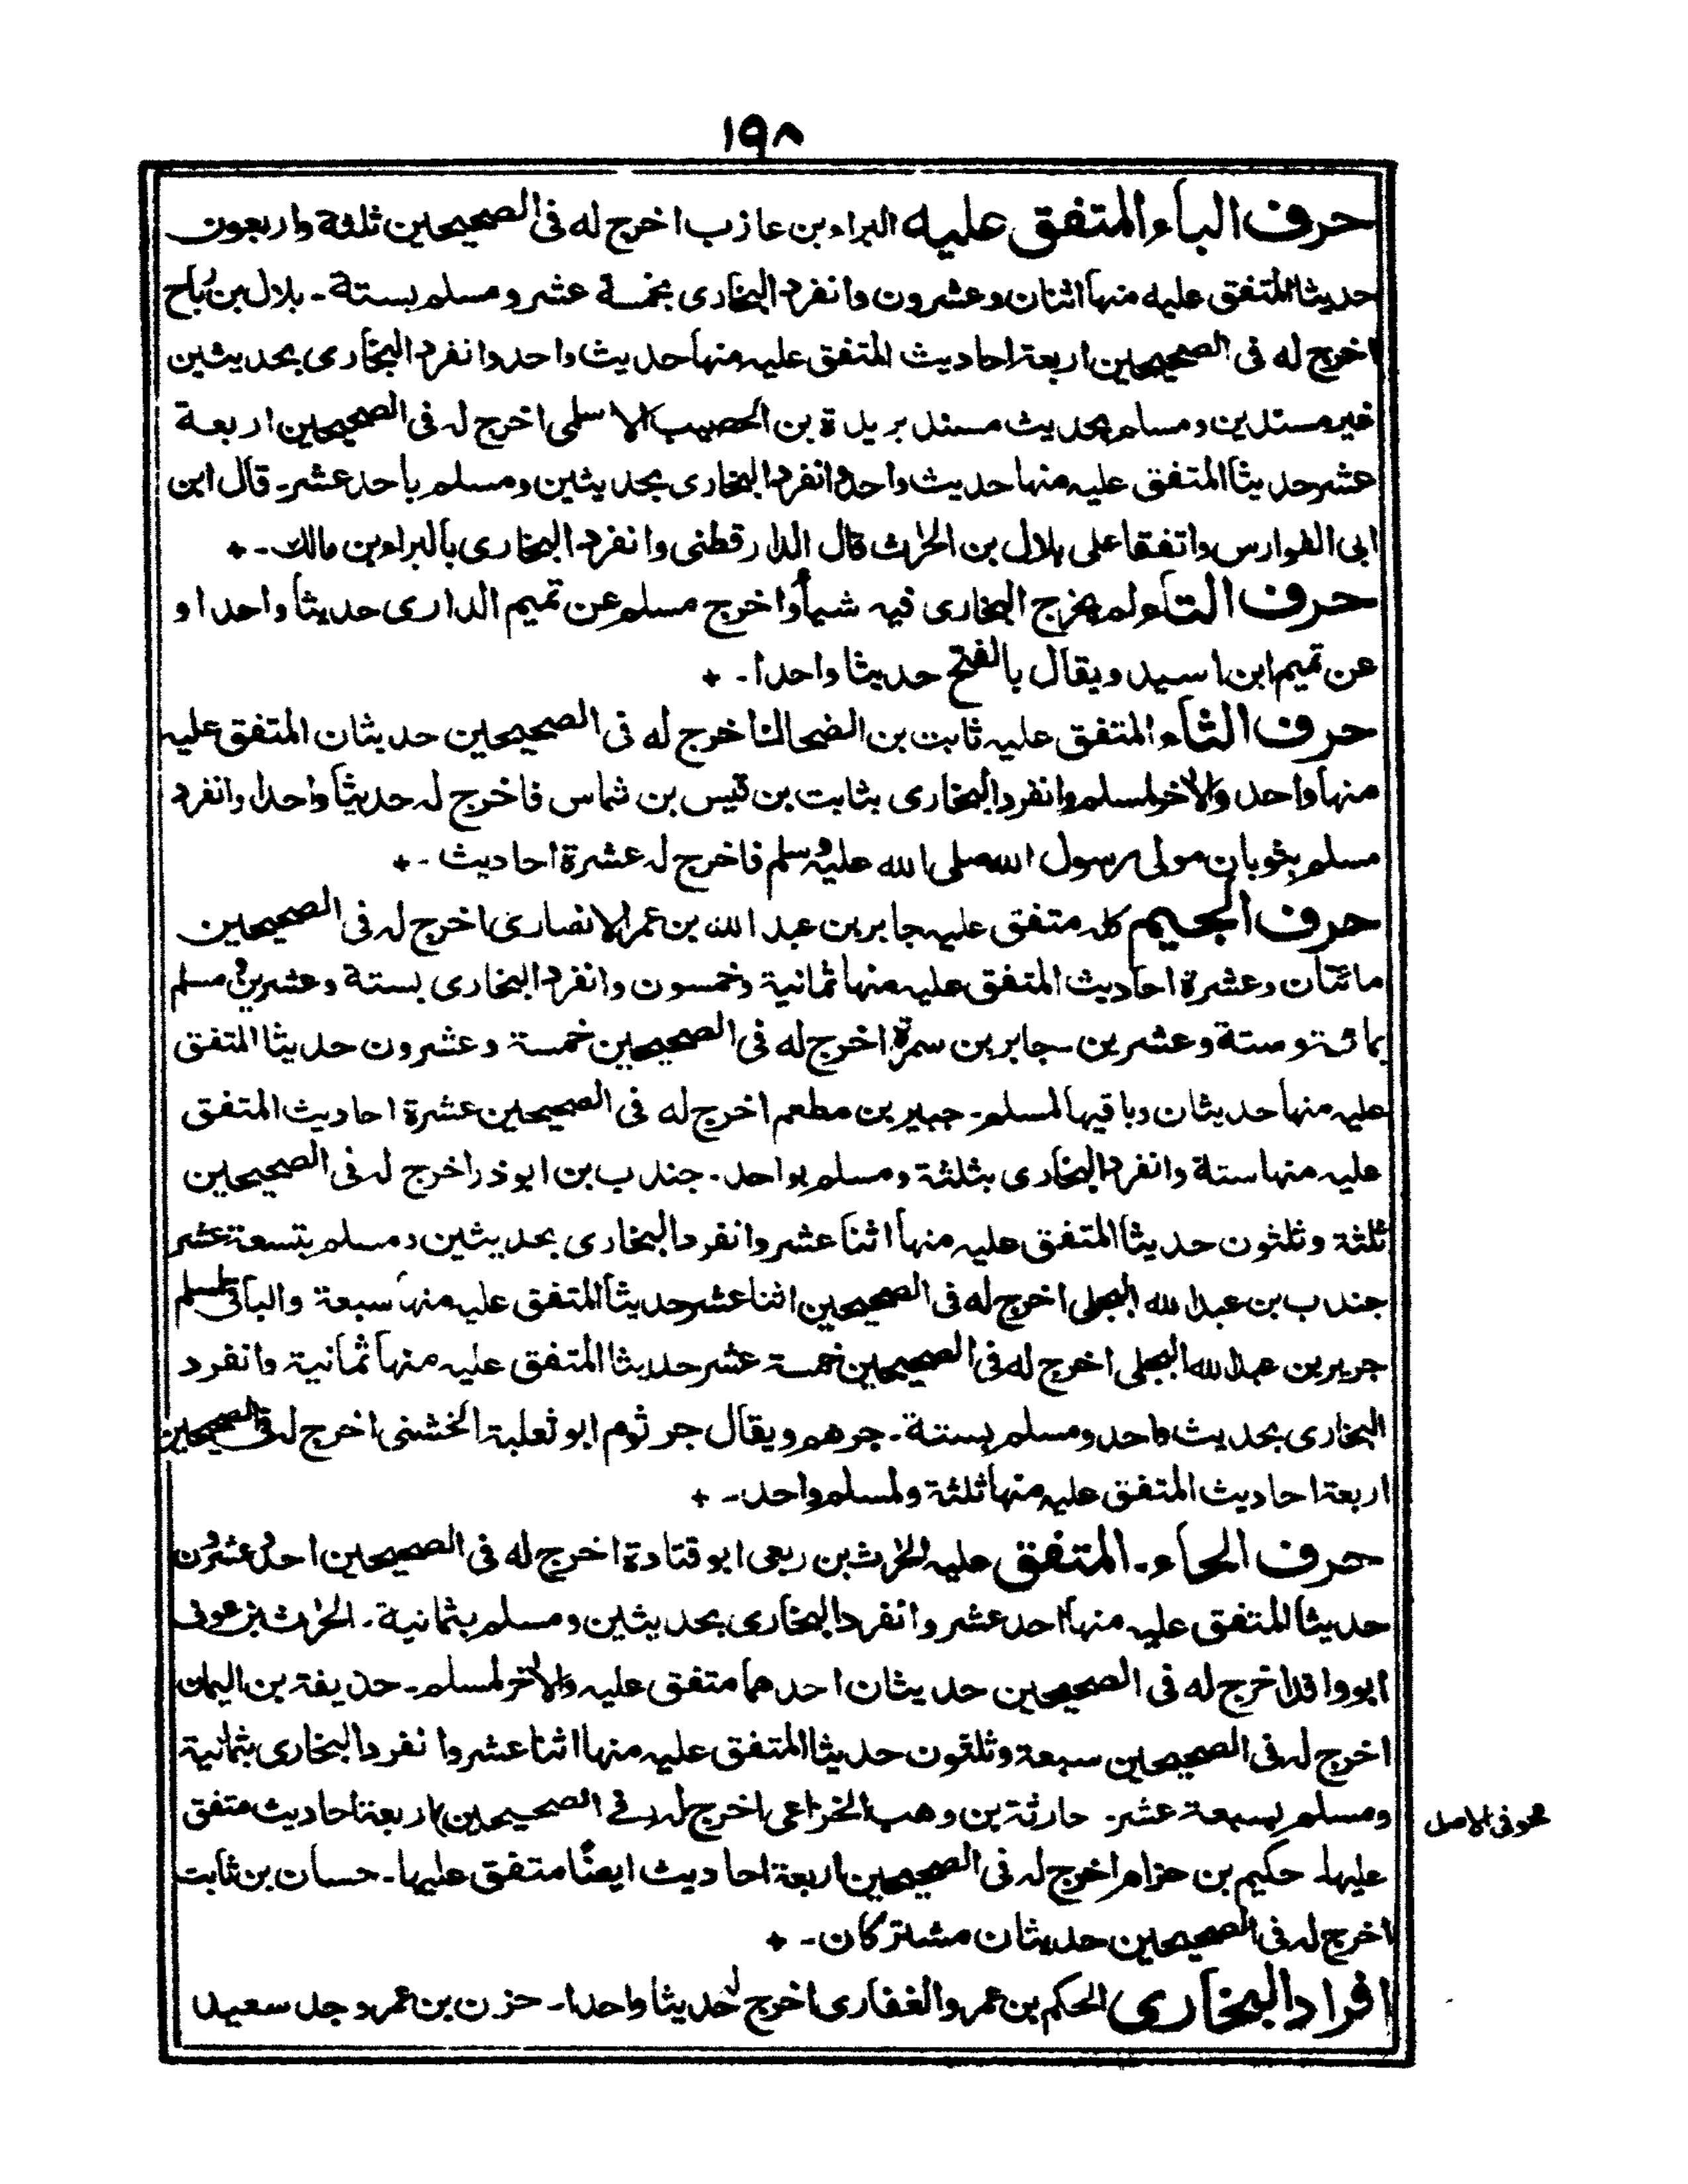 ١٩٨
حرف الباء المتفق عليه البراء بن عازب اخرج له فى الصحيحين ثلثة واربعون
حديثا المتفق عليه منها اثنان وعشرون وانفرد البخارى بخمسة عشر ومسلم بستة ـ بلال بن رباح
اخرج له فى الصحيحين اربعة احاديث المتفق عليه منها حديث واحد وانفرد البخارى بحديثين
غير مسندين ومسلم بحديث مسند بريدة بن الحصيب الاسلمى اخرج له فى الصحيحين اربعة
عشر حديثا المتفق عليه منها حديث واحد وانفرد البخارى بحديثين ومسلم باحد عشر ـ قال ابن
ابى الفوارس واتفقا على بلال بن الحٰرث قال الدارقطنى وانفرد البخارى بالبراء بن مالك ـ
حرف التاء ولم يخرج البخارى فيه شيأ واخرج مسلم عن تميم الدارى حديثا واحدا و
عن تميم ابن اسيد ويقال بالفتح حديثا واحدا ـ
حرف الثاء المتفق عليه ثابت بن الضحاك اخرج له فى الصحيحين حديثان المتفق عليه
منها واحد والاخر لمسلم وانفرد البخارى بثابت بن قيس بن شماس فاخرج له حديثا واحدا وانفرد
مسلم بثوبان مولى رسول الله صلى الله عليه وسلم فاخرج له عشرة احاديث ـ
حرف الجيم كله متفق عليه جابر بن عبد الله بن عمر الانصارى اخرج له فى الصحيحين
مائتان وعشرة احاديث المتفق عليه منها ثمانية وخمسون وانفرد البخارى بستة وعشرين ومسلم
بمائة وستة وعشرين ـ جابر بن سمرة اخرج له فى الصحيحين خمسة وعشرون حديثا المتفق
عليه منها حديثان وباقيها لمسلم ـ جبير بن مطعم اخرج له فى الصحيحين عشرة احاديث المتفق
عليه منها ستة وانفرد البخارى بثلثة ومسلم بواحد ـ جندب بن ابوذر اخرج له فى الصحيحين
ثلثة وثلثون حديثا المتفق عليه منها اثنا عشر وانفرد البخارى بحديثين ومسلم بتسعة عشر
جندب بن عبد الله البجلى اخرج له فى الصحيحين اثنا عشر حديثا المتفق عليه منها سبعة والباقى لمسلم
جرير بن عبد الله البجلى اخرج له فى الصحيحين خمسة عشر حديثا المتفق عليه منها ثمانية وانفرد
البخارى بحديث واحد ومسلم بستة ـ جرهم ويقال جرثوم ابو ثعلبة الخشنى اخرج له فى الصحيحين
اربعة احاديث المتفق عليه منها ثلثة ولمسلم واحد ـ
حرف الحاء ـ المتفق عليه الحٰرث بن ربعى ابو قتادة اخرج له فى الصحيحين احد وعشرون
حديثا المتفق عليه منها احد عشر وانفرد البخارى بحديثين ومسلم بثمانية ـ الحٰرث بن عوف
ابو واقد اخرج له فى الصحيحين حديثان احدهما متفق عليه والاخر لمسلم ـ حذيفة بن اليمان
اخرج له فى الصحيحين سبعة وثلثون حديثا المتفق عليه منها اثنا عشر وانفرد البخارى بثمانية
ومسلم بسبعة عشر ـ حارثة بن وهب الخزاعى اخرج له (فى الصحيحين) اربعة احاديث متفق
عليها ـ حكيم بن حزام اخرج له فى الصحيحين اربعة احاديث ايضًا متفق عليها ـ حسان بن ثابت
اخرج له فى الصحيحين حديثان مشتركان ـ
افراد البخارى الحكم بن عمرو الغفارى اخرج له حديثا واحدا ـ حزن بن عمر وجد سعيد
محو فى الاصل